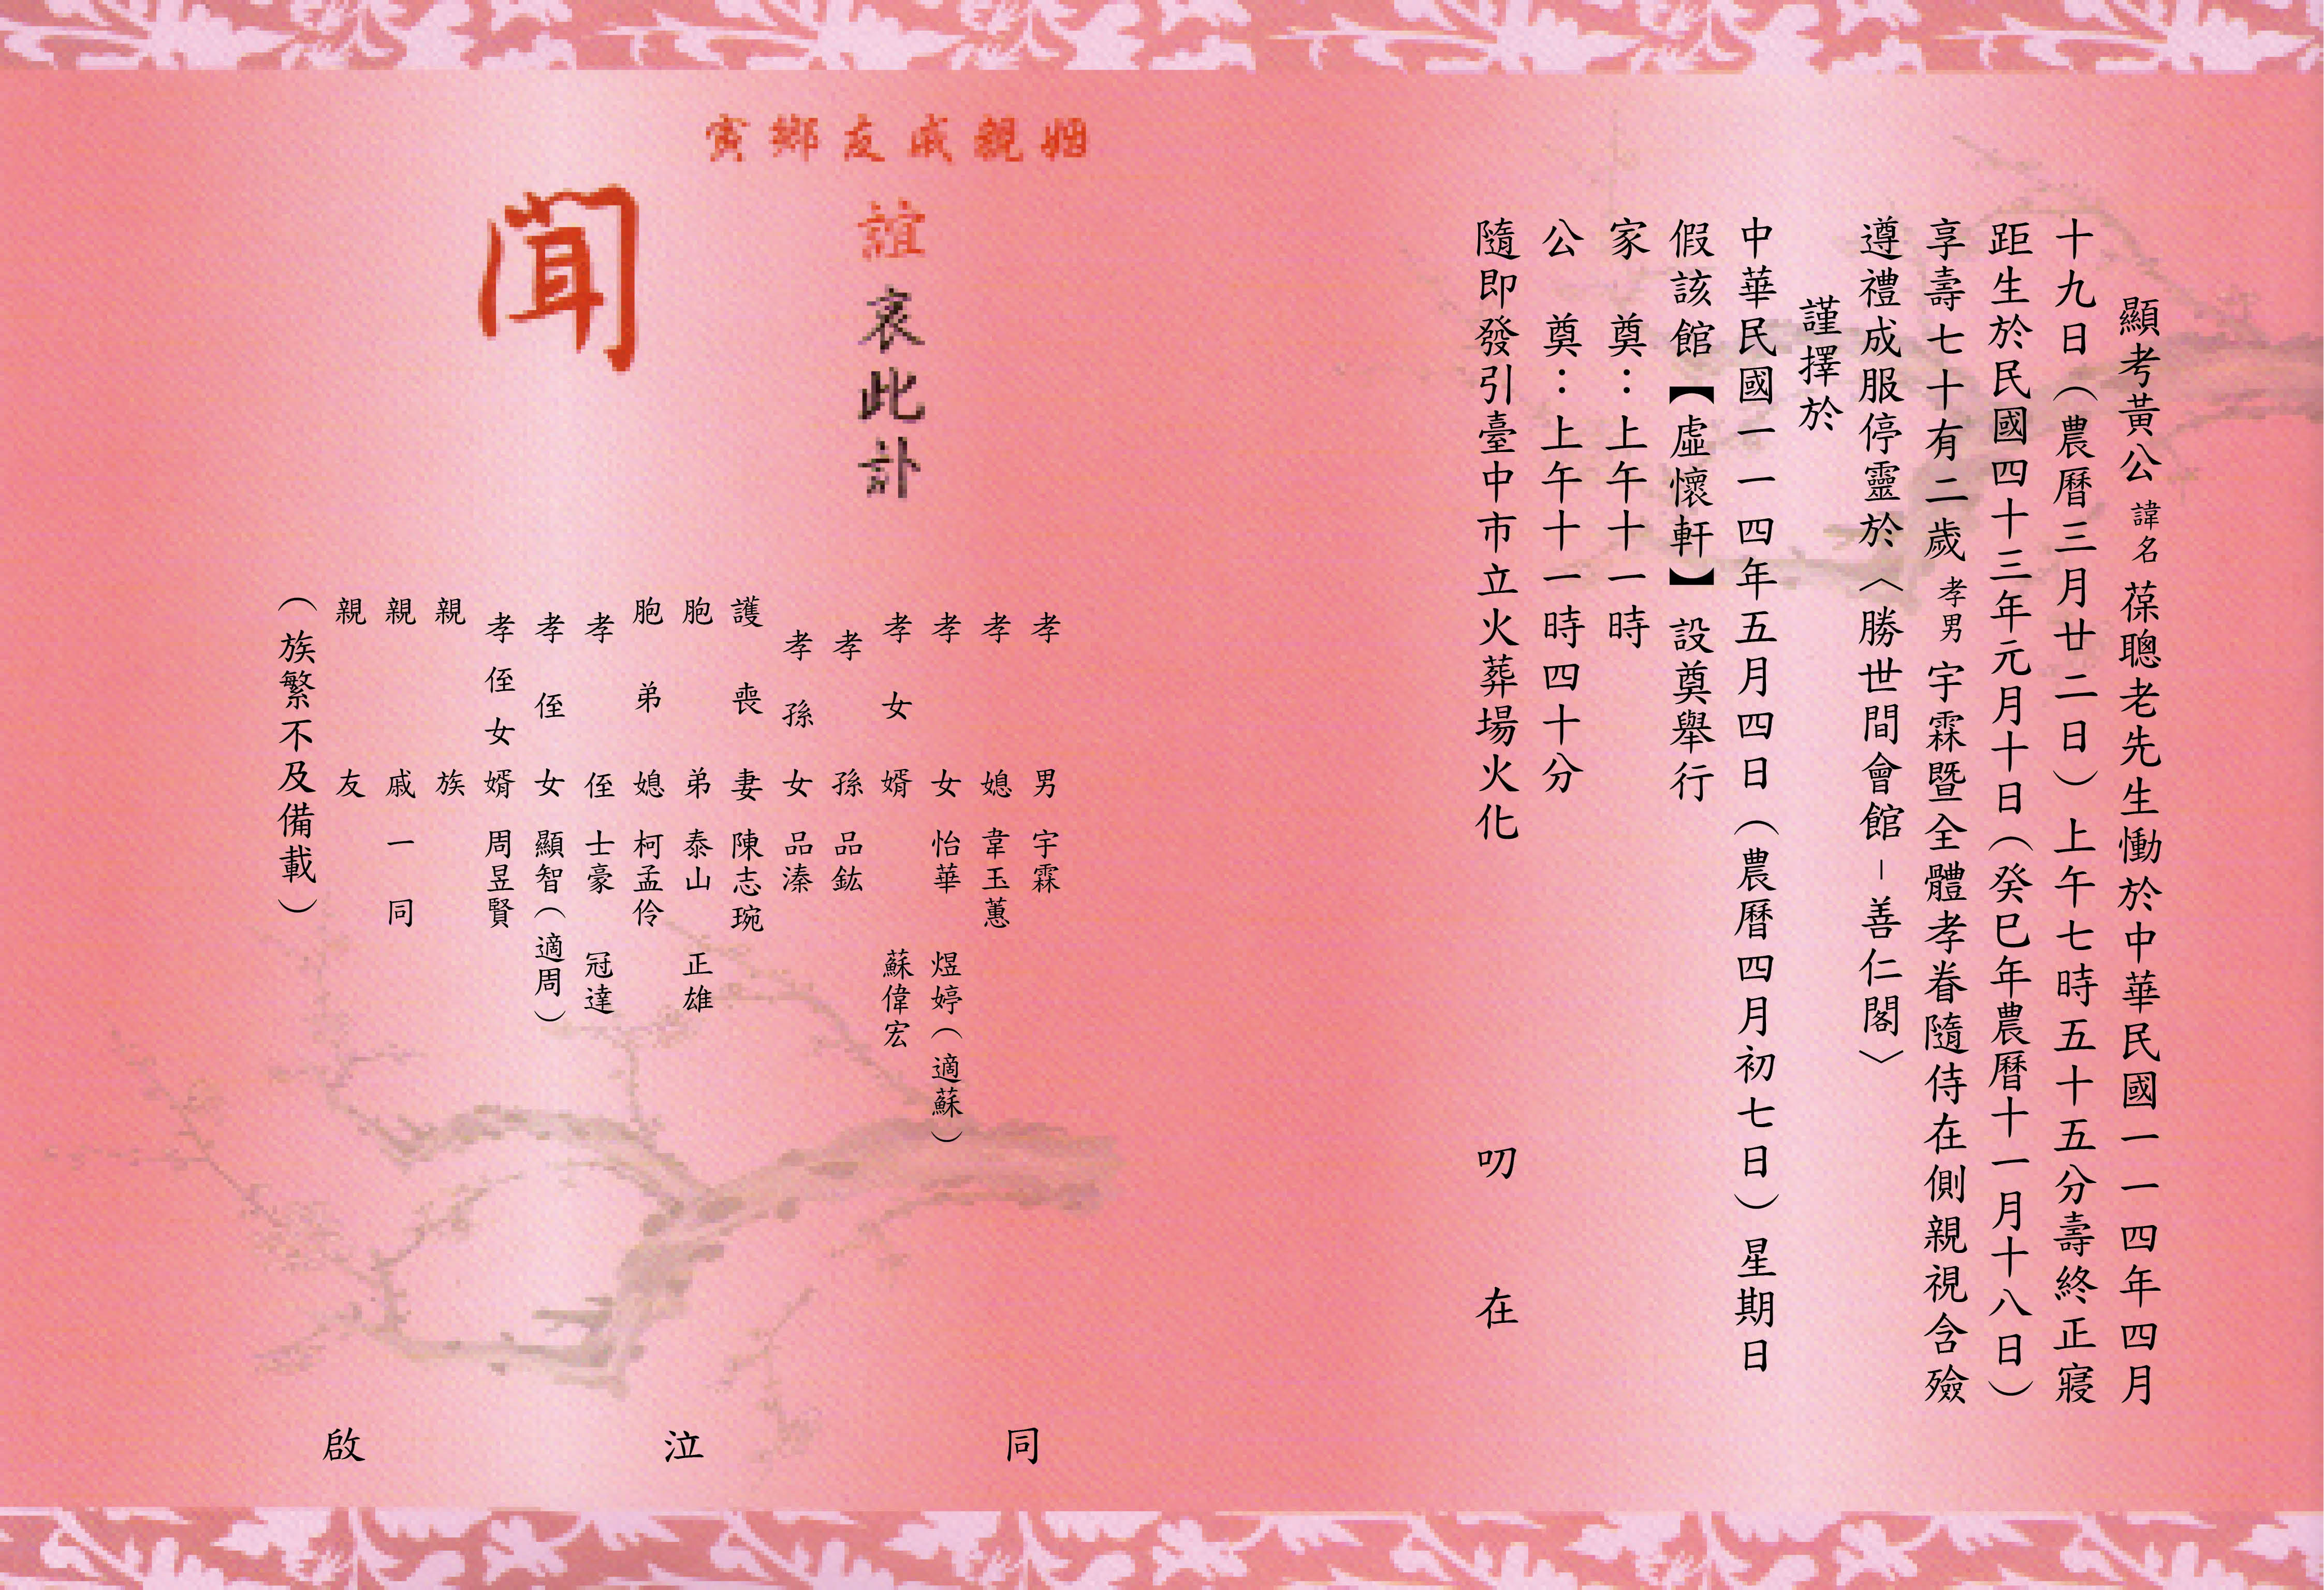 顯考黃公 諱名 葆聰老先生慟於中華民國一一四年四月
十九日（農曆三月廿二日）上午七時五十五分壽終正寢
距生於民國四十三年元月十日（癸巳年農曆十一月十八日）
享壽七十有二歲 孝男 宇霖暨全體孝眷隨侍在側親視含殮
遵禮成服停靈於〈勝世間會館-善仁閣〉
謹擇於
中華民國一一四年五月四日（農曆四月初七日）星期日
假該館【虛懷軒】設奠舉行
家 奠：上午十一時
公 奠：上午十一時四十分
隨即發引臺中市立火葬場火化
叨 在
姻親戚友鄉寅
誼 哀此訃
聞
孝男 宇霖
孝媳 韋玉蕙
孝女 怡華 煜婷（適蘇）
孝女婿 蘇偉宏
孝孫 品鈜
孝孫女 品溱
護喪妻 陳志琬
胞弟 泰山 正雄
胞弟媳 柯孟伶
孝侄 士豪 冠達
孝侄女 顯智（適周）
孝侄女婿 周昱賢
親族
親戚一同
親友
（族繁不及備載）
同 泣 啟